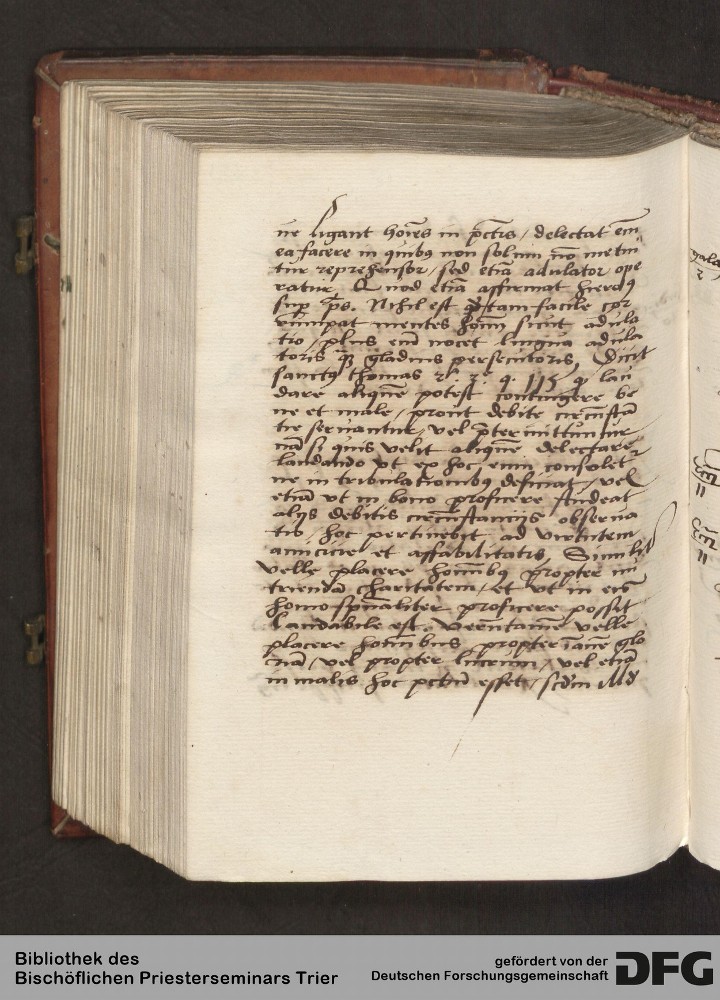 ue ligant hoīes in pctīs / delectat eīm
ea facere in quibꝰ non solum nō metui
tur reprehensor / sed etiā adulator ope
ratur Quod etiā affirmat hieroꝰ
sup ps. Nihil est qđ tam facile cor
rumpat mentes hoīm sicut adula
tio / plus eīm nocet lingua adula
toris qͣꝫ gladius persecutoris, Dicit
sanctꝰ thomas 2ᵃ. 2ᵉ q. 115 q lau
dare aliquē potest contingere be
ne et male / prout debite circūstā
tie seruantur / vel p̄termittuntur
nā si quis velit aliquē delectare
laudando vt ex hoc eum consolet
ne in tribulationibꝰ deficiat / vel
etiā vt in bono proficere studeat
alijs debitis circūstancijs obserua
tis / hoc pertinebit ad virtutem
amicicie et affabilitatis, Similit
velle placere hoīnibꝰ propter nu
triendā charitatem / et vt in eis
homo spūaliter proficere possit
laudabile est Verūtamē velle
placere hoīnibus propter īanē glo
riā / vel propter lucrum / vel etiā
in malis hoc pctm̄ esset / scdm illd
Bibliothek des
Bischöflichen Priesterseminars Trier
gefördert von der
Deutschen Forschungsgemeinschaft
DFG